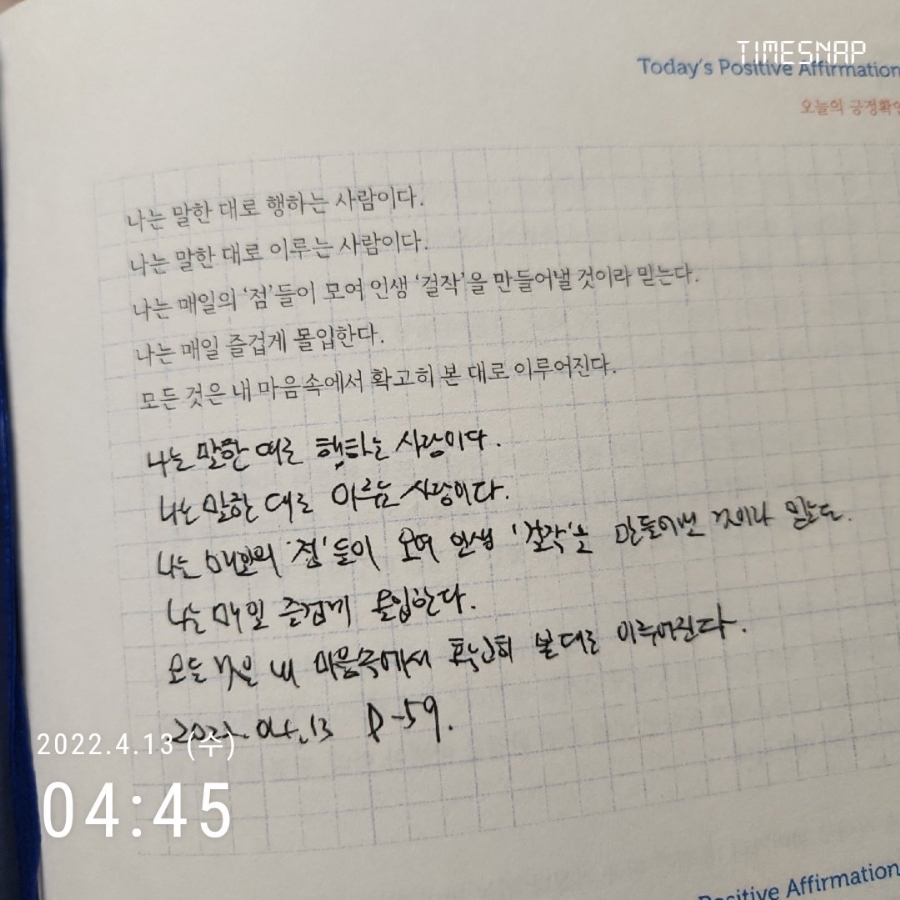 TIMESNAP
Today's Positive Affirmation
오늘의 긍정확언
나는 말한 대로 행하는 사람이다.
나는 말한 대로 이루는 사람이다.
나는 매일의 '점'들이 모여 인생 '걸작'을 만들어낼 것이라 믿는다.
나는 매일 즐겁게 몰입한다.
모든 것은 내 마음속에서 확고히 본 대로 이루어진다.
나는 말한 대로 행하는 사람이다.
나는 말한 대로 이루는 사람이다.
나는 매일의 '점'들이 모여 인생 '걸작'을 만들어낼 것이라 믿는다.
나는 매일 즐겁게 몰입한다.
모든 것은 내 마음속에서 확고히 본 대로 이루어진다.
2022.04.13 D-59.
2022.4.13 (수)
04:45
Positive Affirmation